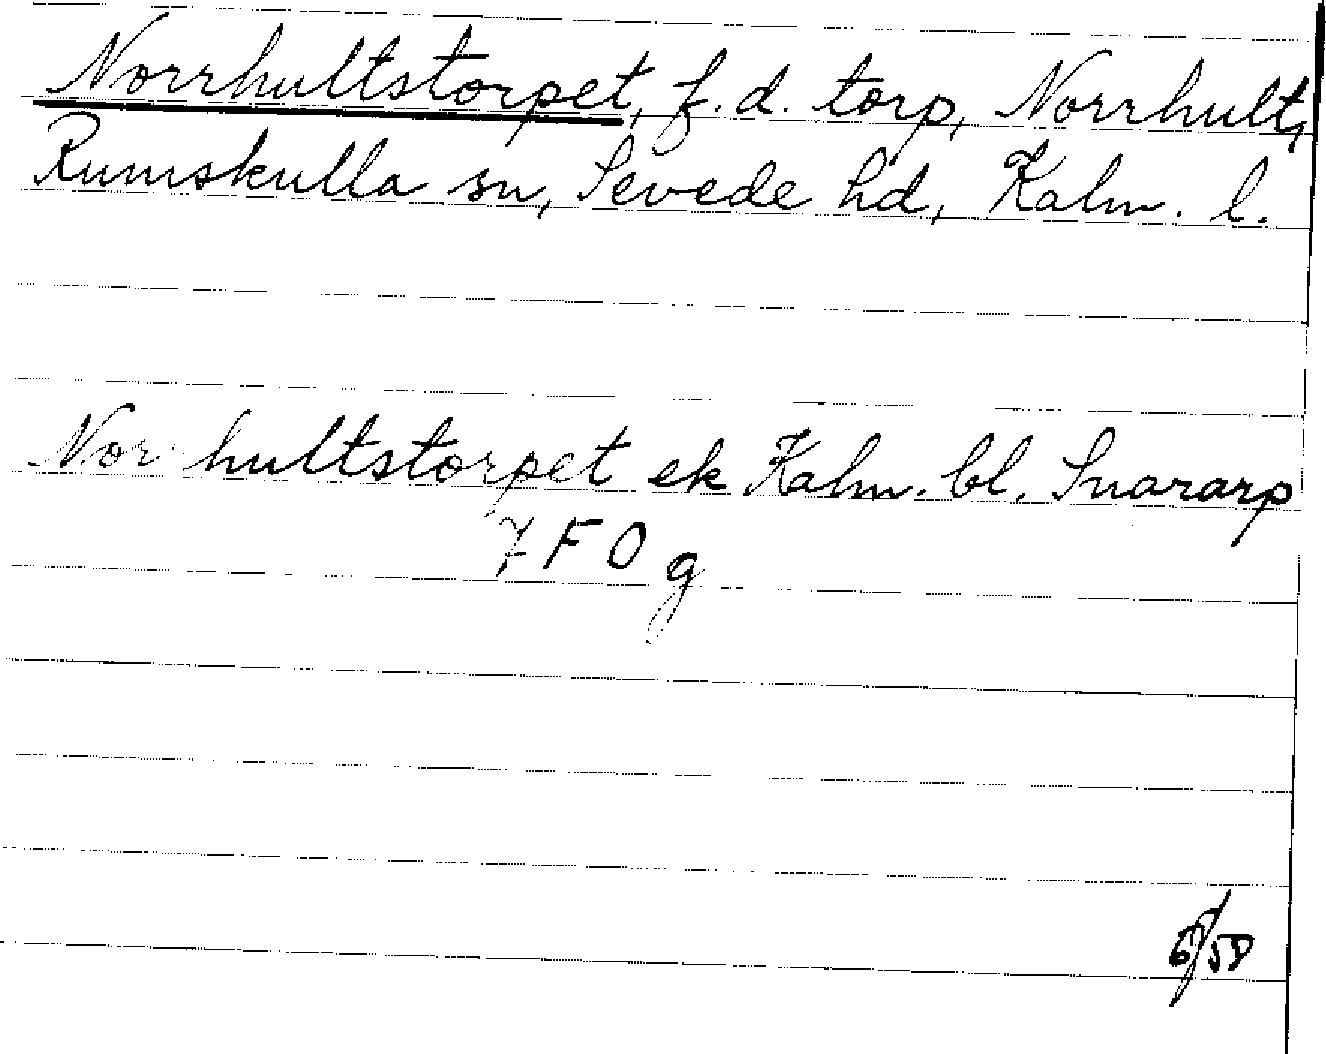 Norrhultstorpet, f.d. torp, Norrhult,
Rumskulla sn, Sevede hd, Kalm. l.
Norrhultstorpet ek Kalm. bl. Snararp
7 F O g